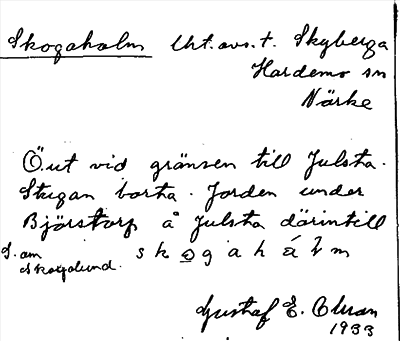 Skogaholm Utt. avs. t. Skyberga
Hardemo sn
Närke
Ö.ut vid gränsen till Julsta.
Stugan borta. Jorden under
Björstorp å Julsta därintill
S. om
Skogalund.
s k o g a h å l m
Gustaf E.
1933